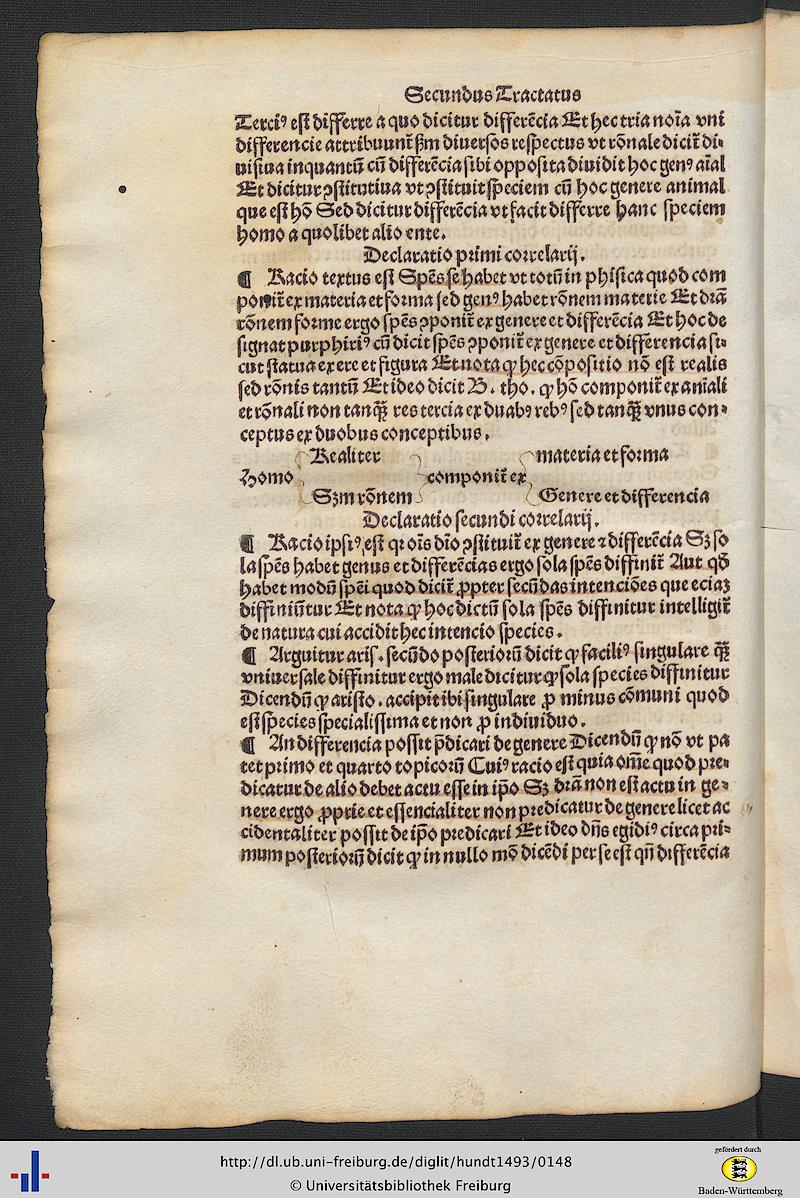 Secundus Tractatus
Terciꝰ est differre a quo dicitur differēcia Et hec tria noīa vni
differencie attribuunt᷑ ẜm diuersos respectus vt rōnale dicit᷑ di⸗
uisiua inquantū cū differēcia sibi opposita diuidit hoc genꝰ aīal
Et dicitur ꝯstitutiua vt ꝯstituit speciem cū hoc genere animal
que est hō Sed dicitur differēcia vt facit differre hanc speciem
homo a quolibet alio ente.
Declaratio primi correlarij.
¶ Racio textus est Spēs se habet vt totū in phisica quod com
ponit᷑ ex materia et forma sed genꝰ habet rōnem materie Et drā
rōnem forme ergo spēs ꝯponit᷑ ex genere et differēcia Et hoc de
signat purphiriꝰ cū dicit spēs ꝯponit᷑ ex genere et differencia si⸗
cut statua ex ere et figura Et nota ꝙ hec cōpositio nō est realis
sed rōnis tantū Et ideo dicit B. tho. ꝙ hō componit᷑ ex aīali
et rōnali non tanq̄ȝ res tercia ex duabꝰ rebꝰ sed tanq̄ȝ vnus con⸗
ceptus ex duobus conceptibus.
Realiter materia et forma
Homo componit᷑ ex
Sꝫm rōnem Genere et differencia
Declaratio secundi correlarij.
¶ Racio ipsiꝰ est qꝛ oīs dīo ꝯstituit᷑ ex genere ⁊ differēcia Sꝫ so
la spēs habet genus et differēcias ergo sola spēs diffinit᷑ Aut qď
habet modū spēi quod dicit᷑ ꝓpter secūdas intenciōes que eciaꝫ
diffiniūtur Et nota ꝙ hoc dictū sola spēs diffinitur intelligit᷑
de natura cui accidit hec intencio species.
¶ Arguitur aris. secūdo posteriorū dicit ꝙ faciliꝰ singulare q̄ȝ
vniuersale diffinitur ergo male dicitur ꝙ sola species diffinitur
Dicendū ꝙ aristo. accipit ibi singulare ꝓ minus cōmuni quod
est species specialissima et non ꝓ indiuiduo.
¶ An differencia possit p̄dicari de genere Dicendū ꝙ nō vt pa
tet primo et quarto topicorū Cuiꝰ racio est quia om̄e quod pre⸗
dicatur de alio debet actu esse in ip̄o Sꝫ drā non est actu in ge⸗
nere ergo ꝓprie et essencialiter non predicatur de genere licet ac
cidentaliter possit de ip̄o predicari Et ideo dn̄s egidiꝰ circa pri⸗
mum posteriorū dicit ꝙ in nullo mō dicēdi per se est qn̄ differēcia
http://dl.ub.uni-freiburg.de/diglit/hundt1493/0148
© Universitätsbibliothek Freiburg
gefördert durch
Baden-Württemberg